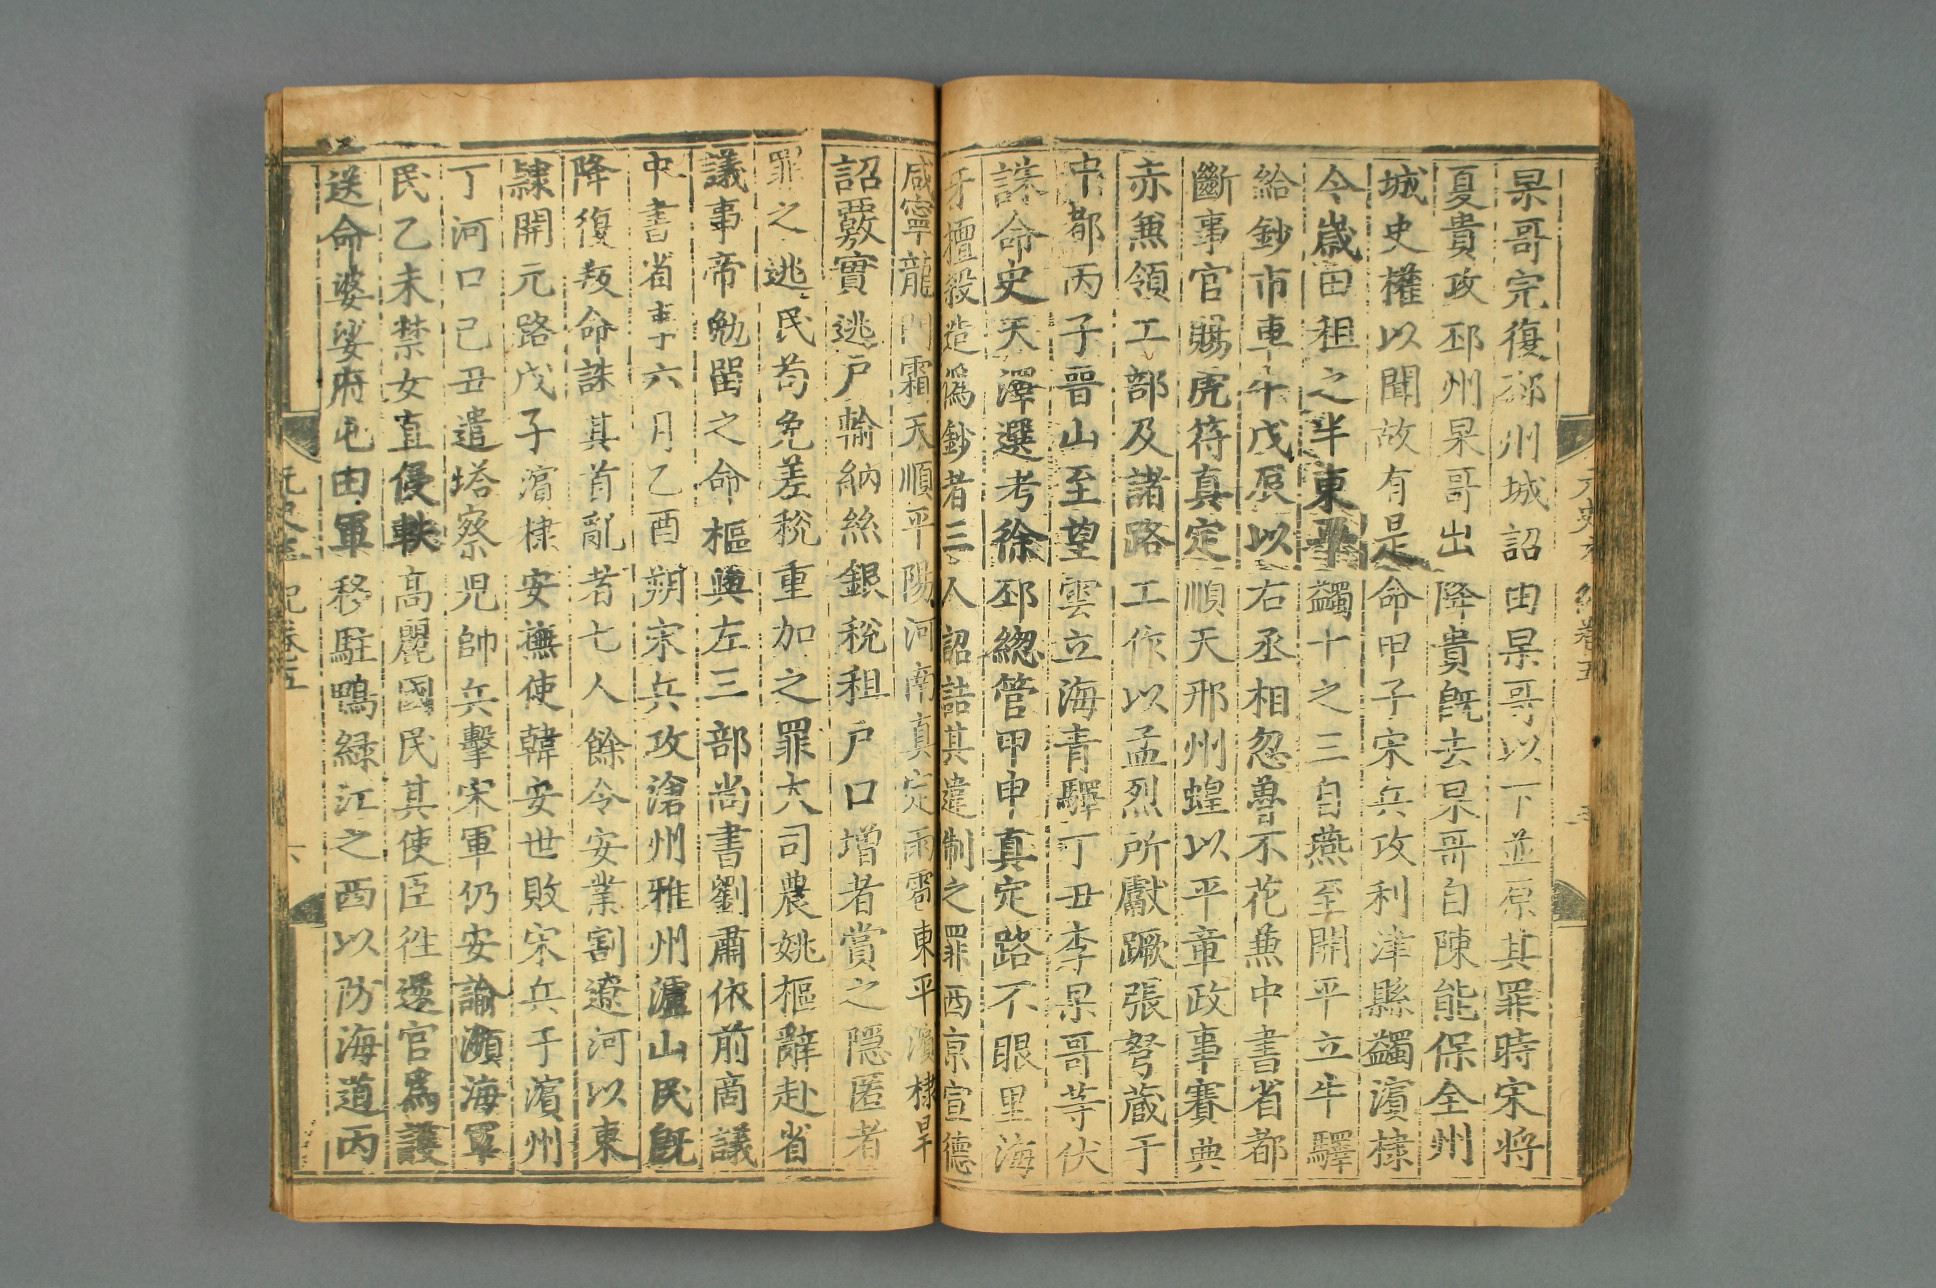 杲哥完復邳州城詔由杲哥以下並原其罪時宋將
夏貴攻邳州杲哥出降貴旣去杲哥自陳能保全州
城史權以聞故有是命甲子宋兵攻利津縣蠲濱棣
今歲田租之半東平蠲十之三自燕至開平立牛驛
給鈔市車牛戊辰以右丞相忽魯不花兼中書省都
斷事官賜虎符真定順天邢州蝗以平章政事賽典
赤兼領工部及諸路工作以孟烈所獻蹶張弩蔵于
中都丙子晉山至望雲立海青驛丁丑李杲哥等伏
誅命史天澤選考徐邳緫管甲申真定路不眼里海
牙擅殺造僞鈔者三人詔詰其違制之罪西凉宣德
咸寧龍門霜天順平陽河南真定雨雹東平濱棣旱
詔覈實逃戶輸納絲銀稅租戶口增者賞之隱匿者
罪之逃民苟免差稅重加之罪大司農姚樞辭赴省
議事帝勉留之命樞與左三部尚書劉肅依前商議
中書省事六月乙酉朔宋兵攻滄州雅州瀘山民旣
降復叛命誅其首亂者七人餘令安業割遼河以東
隸開元路戊子濱棣安撫使韓安世敗宋兵于濱州
丁河口己丑遣塔察兒帥兵擊宋軍仍安諭瀕海軍
民乙未禁女直侵軼高麗國民其使臣徃還官爲護
送命婆娑府屯田軍移駐鴨綠江之西以防海道丙
元史本紀卷五
六